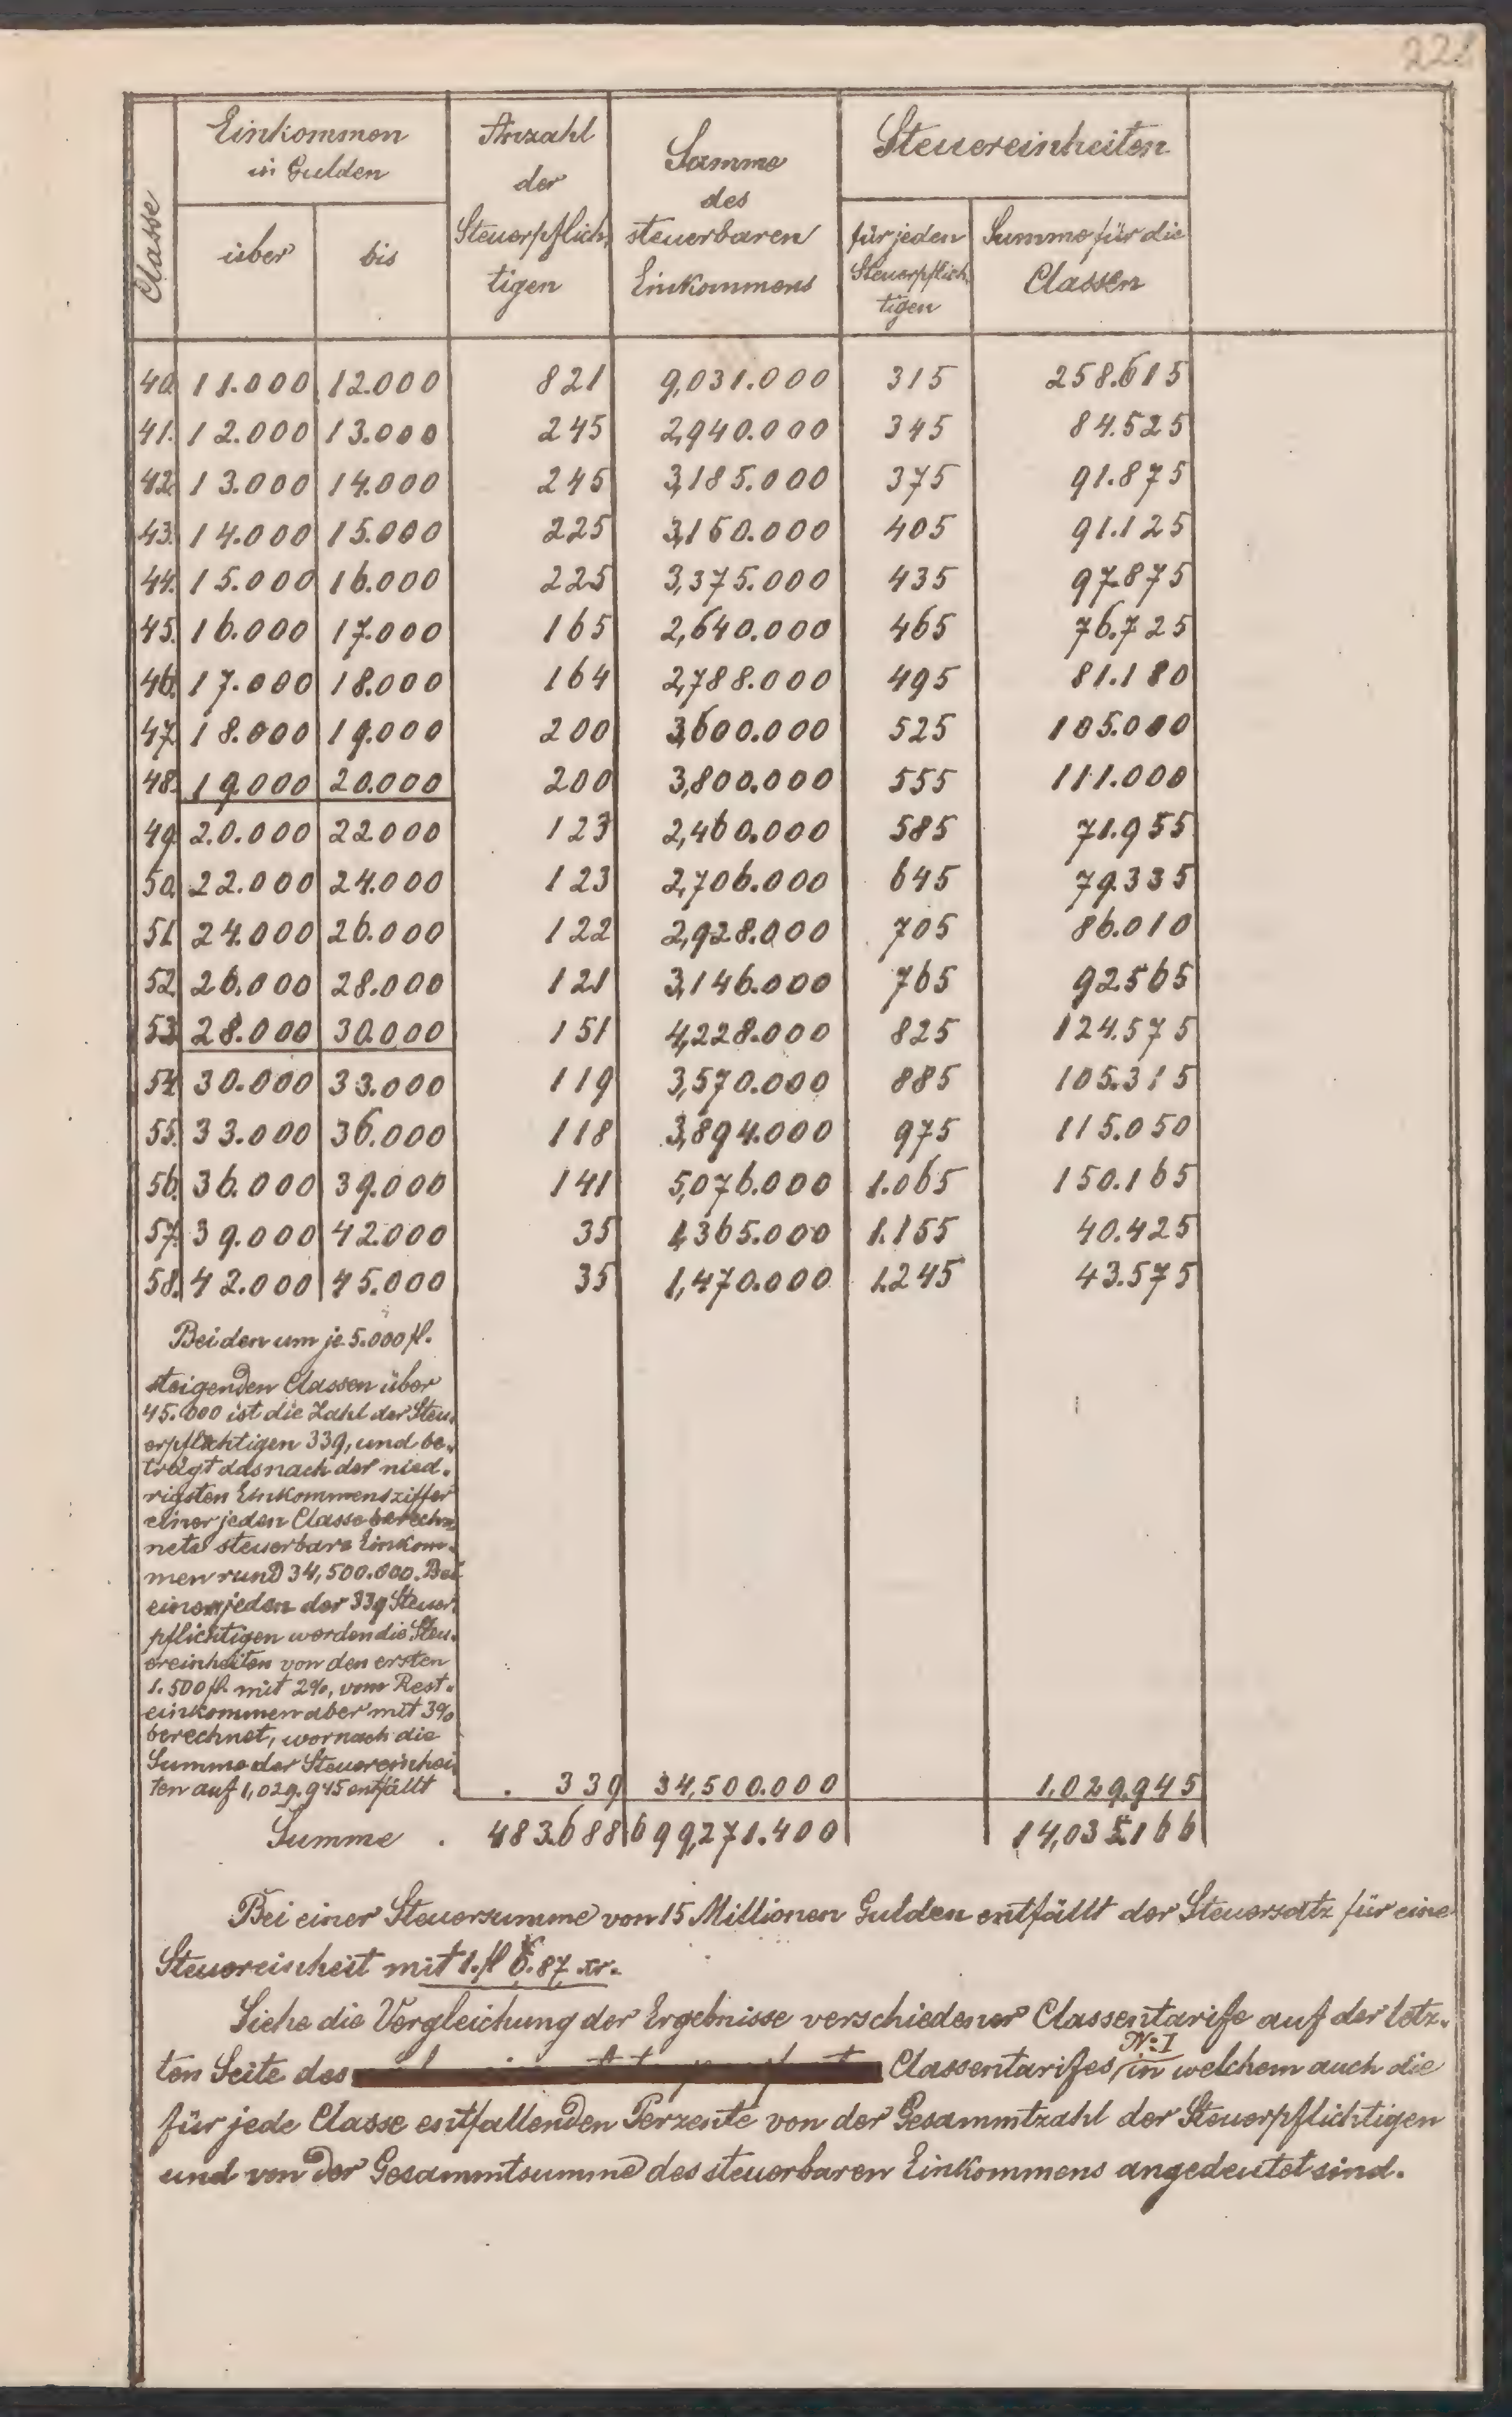 Classe
Einkommen
in Gulden
über
bis
Anzahl
der
Steuerpflich,
tigen
Summe
des
steuerbaren
Einkommens
Steuereinheiten
für jeden
Steuerpflich,
tigen
Summe für die
Classen
40. 11.000 12.000 821 9,031.000 315 258.615
41. 12.000 13.000 245 2,940.000 345 84.525
42. 13.000 14.000 245 3,185.000 375 91.875
43. 14.000 15.000 225 3,150.000 405 91.125
44. 15.000 16.000 225 3,375.000 435 97.875
45. 16.000 17.000 165 2,640.000 465 76.725
46. 17.000 18.000 164 2,788.000 495 81.180
47. 18.000 19.000 200 3,600.000 525 105.000
48. 19.000 20.000 200 3,800.000 555 111.000
49. 20.000 22.000 123 2,460.000 585 71.955
50. 22.000 24.000 123 2,706.000 645 79.335
51. 24.000 26.000 122 2,928.000 705 86.010
52. 26.000 28.000 121 3,146.000 765 92.565
53. 28.000 30.000 151 4,228.000 825 124.575
54. 30.000 33.000 119 3,570.000 885 105.315
55. 33.000 36.000 118 3,894.000 975 115.050
56. 36.000 39.000 141 5,076.000 1.065 150.165
57. 39.000 42.000 35 1,365.000 1.155 40.425
58. 42.000 45.000 35 1,470.000 1.245 43.575
Bei den um je 5.000 fl.
steigenden Classen über
45.000 ist die Zahl der Steu,
erpflichtigen 339, und be,
trägt das nach der nied,
rigsten Einkommensziffer
einer jeden Classe berech,
nete steuerbare Einkom,
men rund 34,500.000. Bei
einem jeden der 339 Steuer,
pflichtigen werden die Steu,
ereinheiten von den ersten
1.500 fl. mit 2%, vom Rest,
einkommen aber mit 3%
berechnet, wornach die
Summe der Steuereinhei,
ten auf 1,029.945 entfällt . . 339 34,500.000 1,029.945
Summe . 483.688 699,271.400 14,035.166
Bei einer Steuersumme von 15 Millionen Gulden entfällt der Steuersatz für eine
Steuereinheit mit 1. fl 6.87 xr.
Siehe die Vergleichung der Ergebnisse verschiedener Classentarife auf der letz,
ten Seite des Classentarifes No: I in welchem auch die
für jede Classe entfallenden Perzente von der Gesammtzahl der Steuerpflichtigen
und von der Gesammtsumme des steuerbaren Einkommens angedeutet sind.